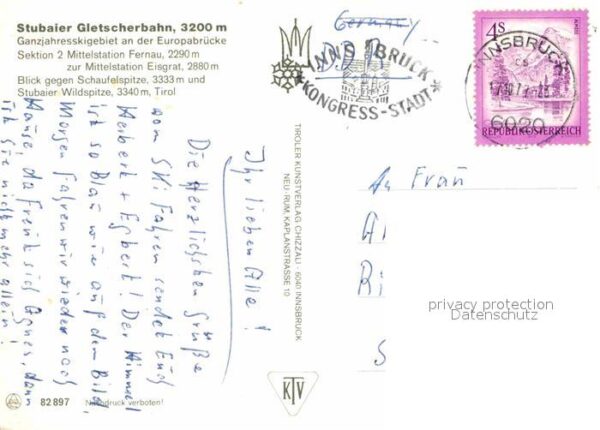 Stubaier Gletscherbahn, 3200 m
Ganzjahresskigebiet an der Europabrücke
Sektion 2 Mittelstation Fernau, 2290 m
zur Mittelstation Eisgrat, 2880 m
Blick gegen Schaufelspitze, 3333 m und
Stubaier Wildspitze, 3340 m, Tirol
Ihr lieben Alle!
Die Herzlichsten Grüße
vom Ski Fahren sendet Euch
Heribert + Egbert! Der Himmel
ist so Blau wie auf dem Bild,
Morgen fahren wir wieder nach
Hause, da freut sich Agnes, dann
ist sie nicht mehr allein!
82 897 Nachdruck verboten!
TIROLER KUNSTVERLAG CHIZZALI · 6040 INNSBRUCK
NEU-RUM, KAPLANSTRASSE 10
KTV
Germany
INNSBRUCK
KONGRESS-STADT
4S
REPUBLIK ÖSTERREICH
INNSBRUCK
6020
An Frau
A
Ri
S
privacy protection
Datenschutz